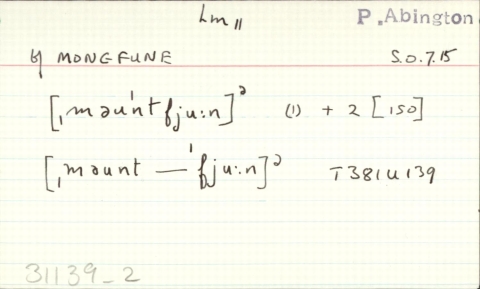 Lm 11 P. Abington
b) MONGEFUNE S.O.7.15
[ˌmaʊntˈfjuːn]² (1) + 2 [iso]
[ˌmaunt — ˈfjuːn]² T381U139
31139_2